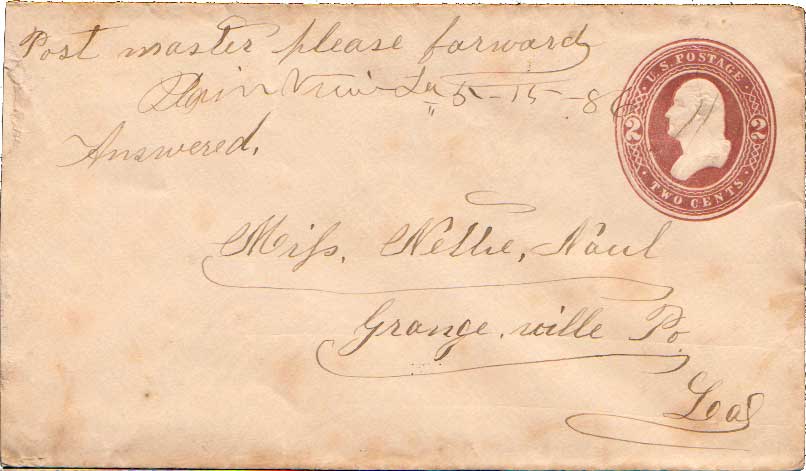 Post master please forward
Plain View La 5-15-86
Answered.
U.S. POSTAGE
2 2
TWO CENTS
Miss. Nellie, Naul
Grange. ville Po.
Loa